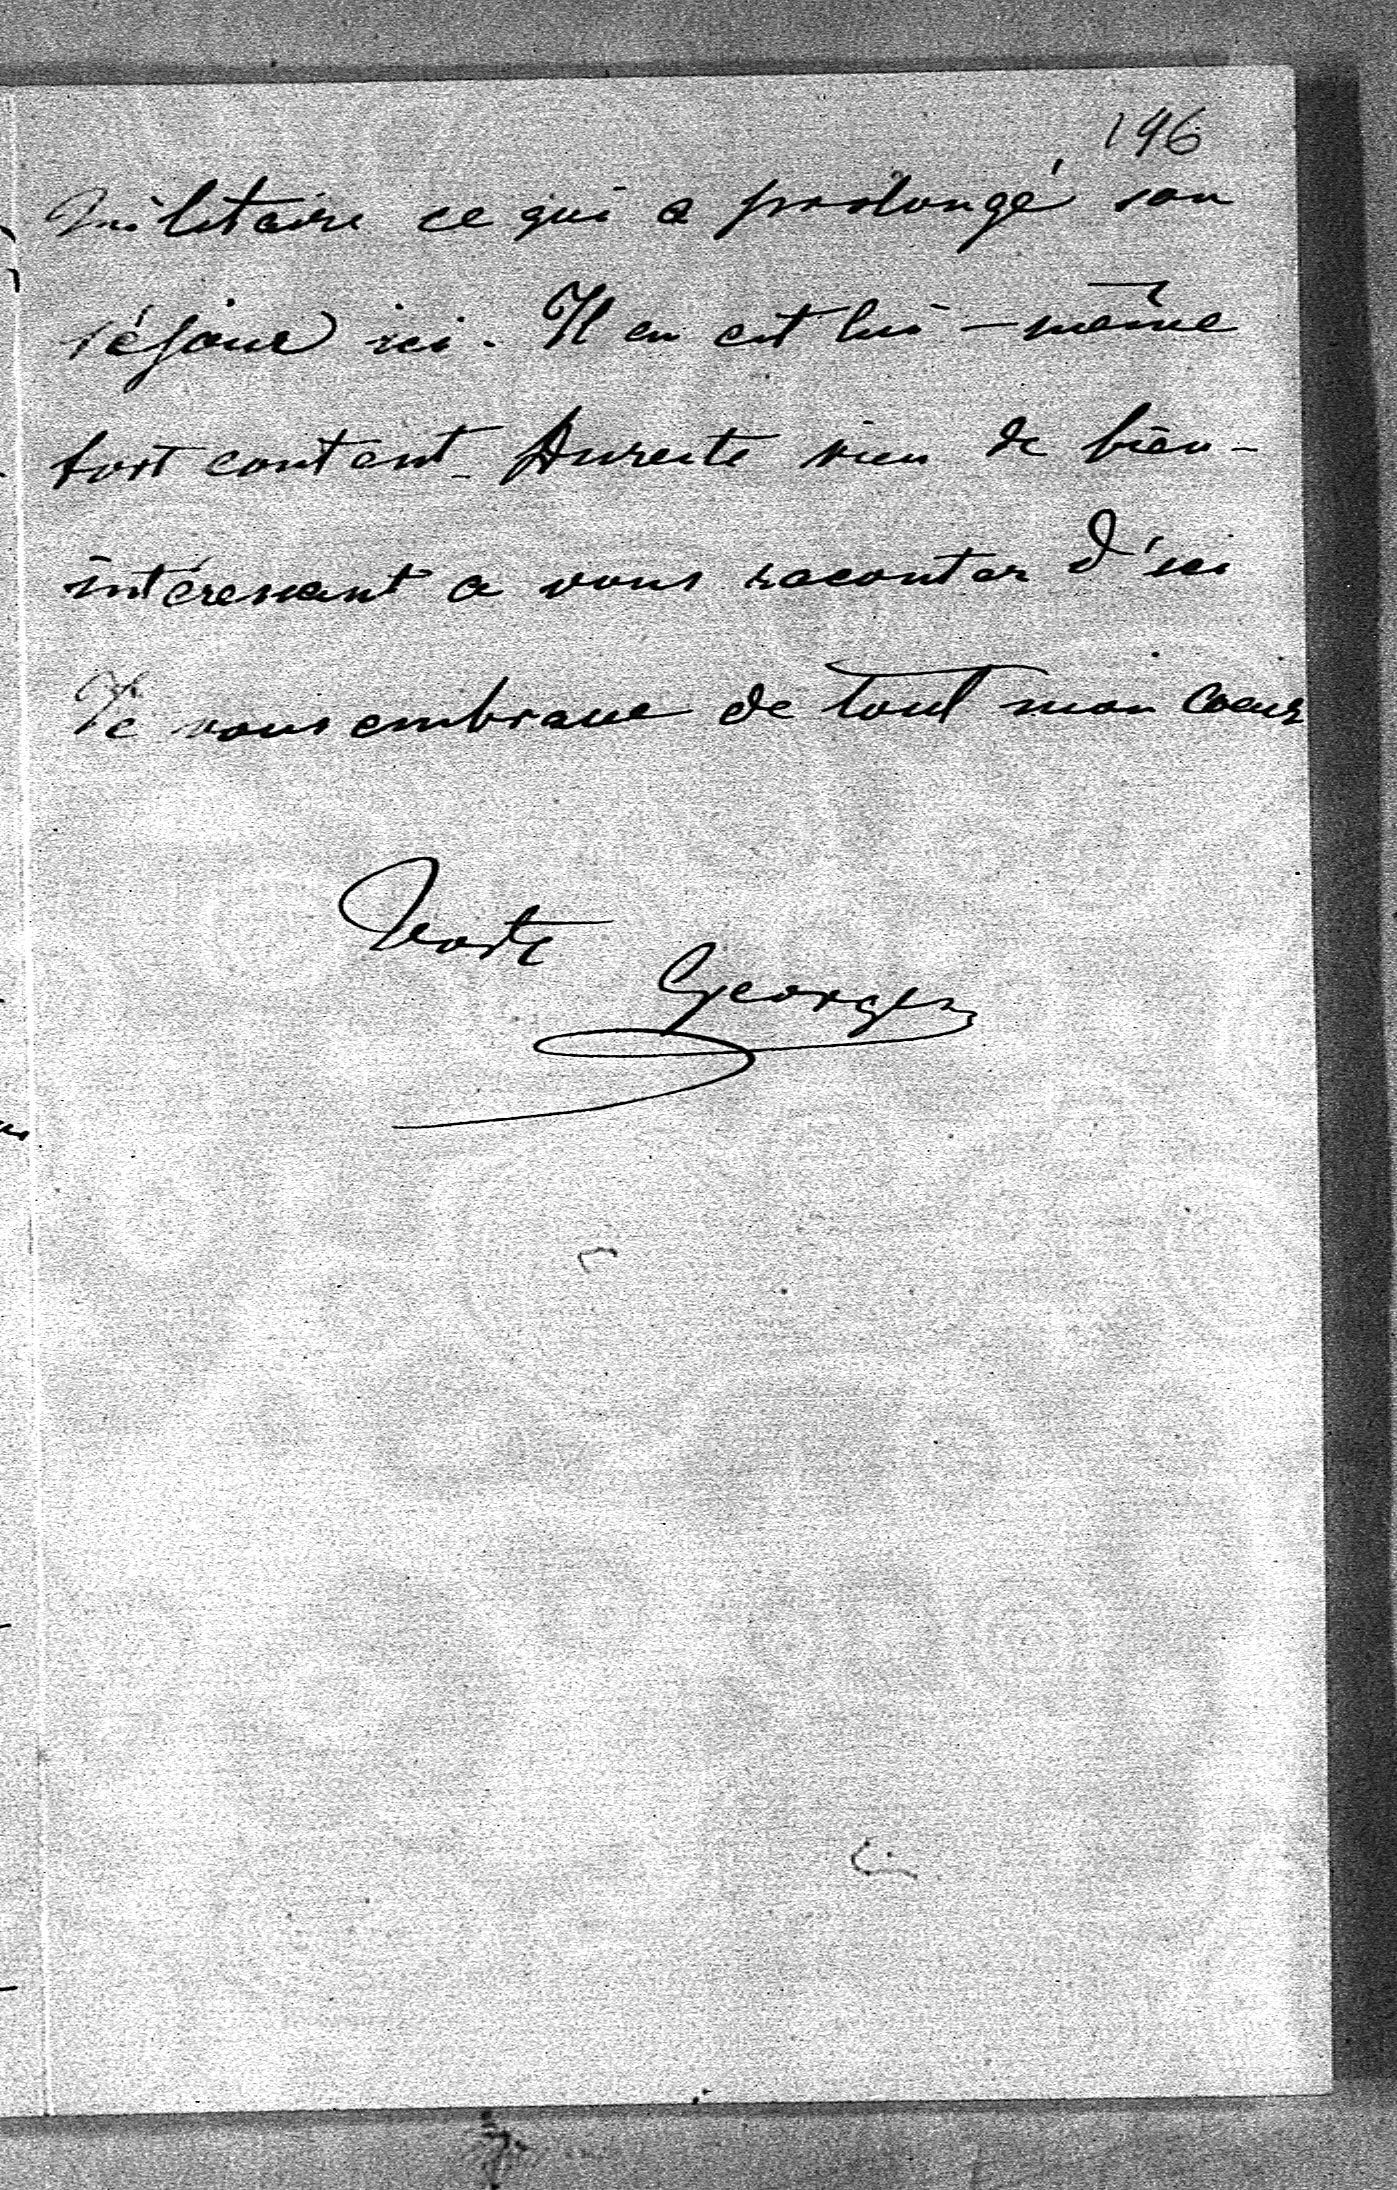 196
militaire ce qui a prolongé son
séjour ici. Il en est lui-même
fort content. Aureste rien de bien-
intéressant a vous raconter d'ici
Je vous embrasse de tout mon coeur
Votre
Georges